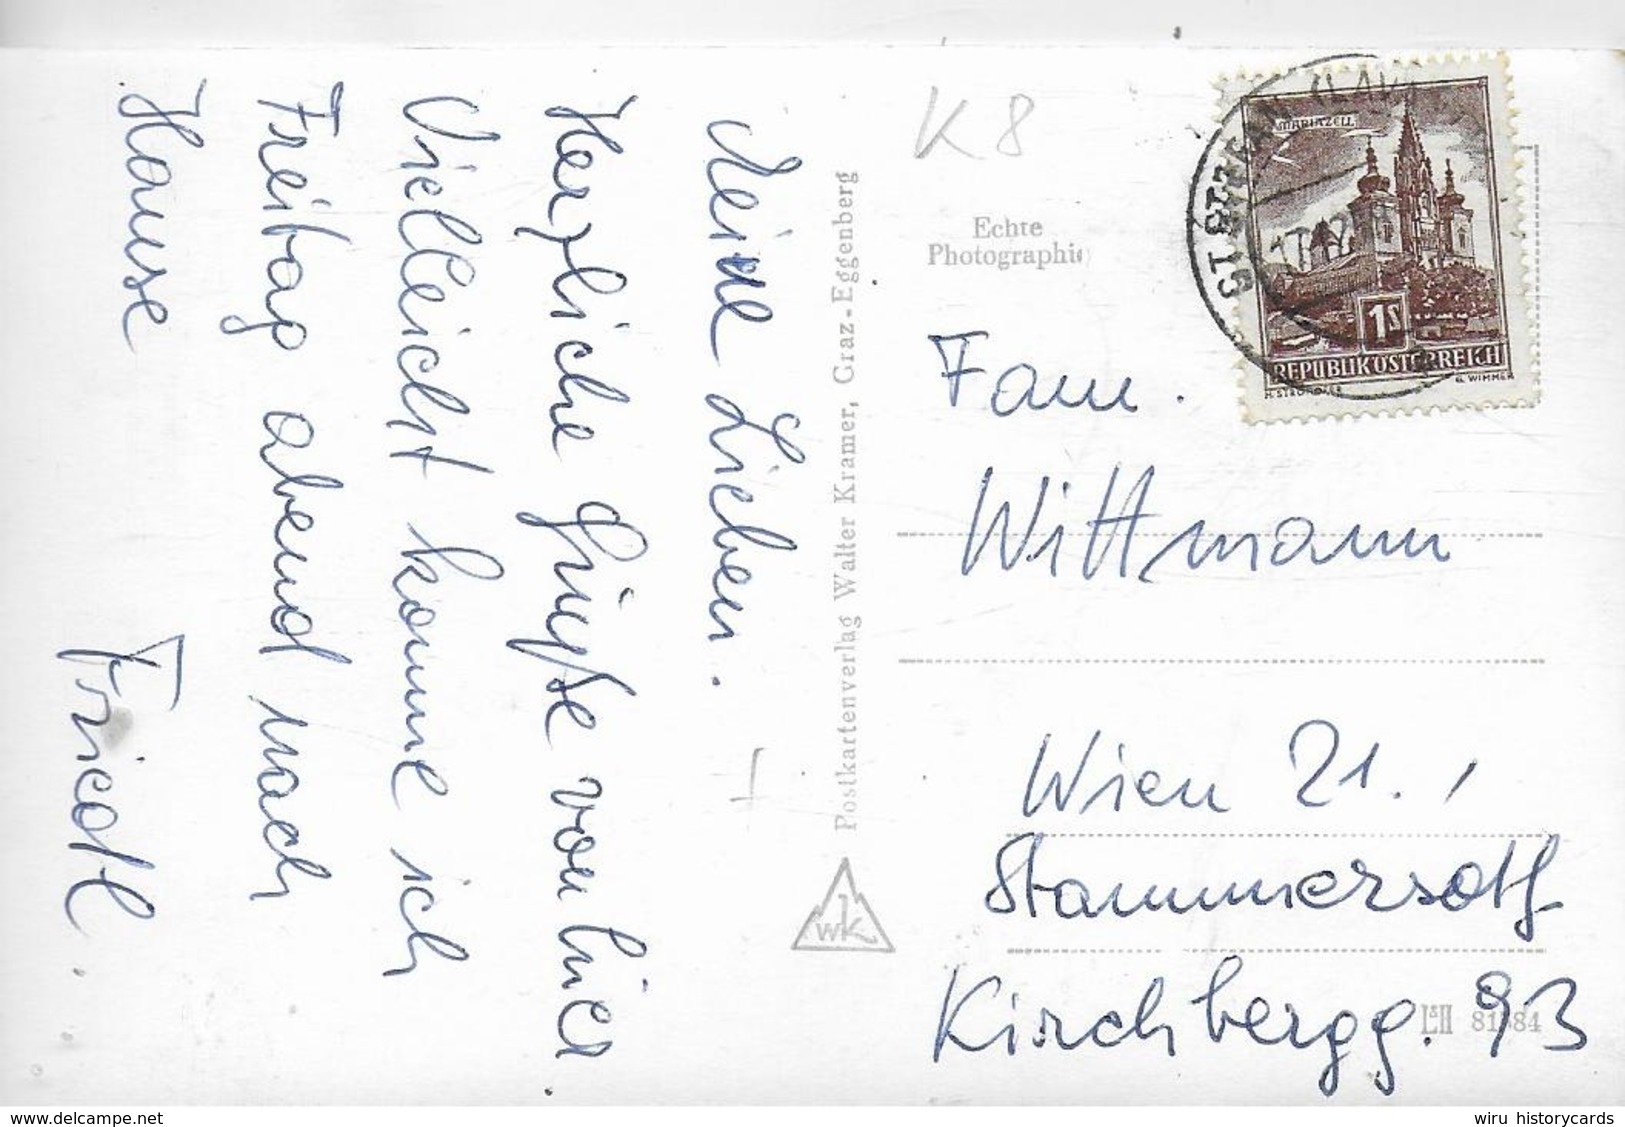 Meine Lieben.
Herzliche Grüße von hier.
Vielleicht komme ich
Freitag abend nach
Hause
Friedl.
Postkartenverlag Walter Kramer, Graz-Eggenberg
wk
K 8
Echte
Photographie
MARIAZELL
1S
REPUBLIK ÖSTERREICH
G. WIMMER
ST. STEFAN
Fam.
Wittmann
Wien 21.,
Stammersdf
Kirchbergg. 93
wiru historycards
www.delcampe.net